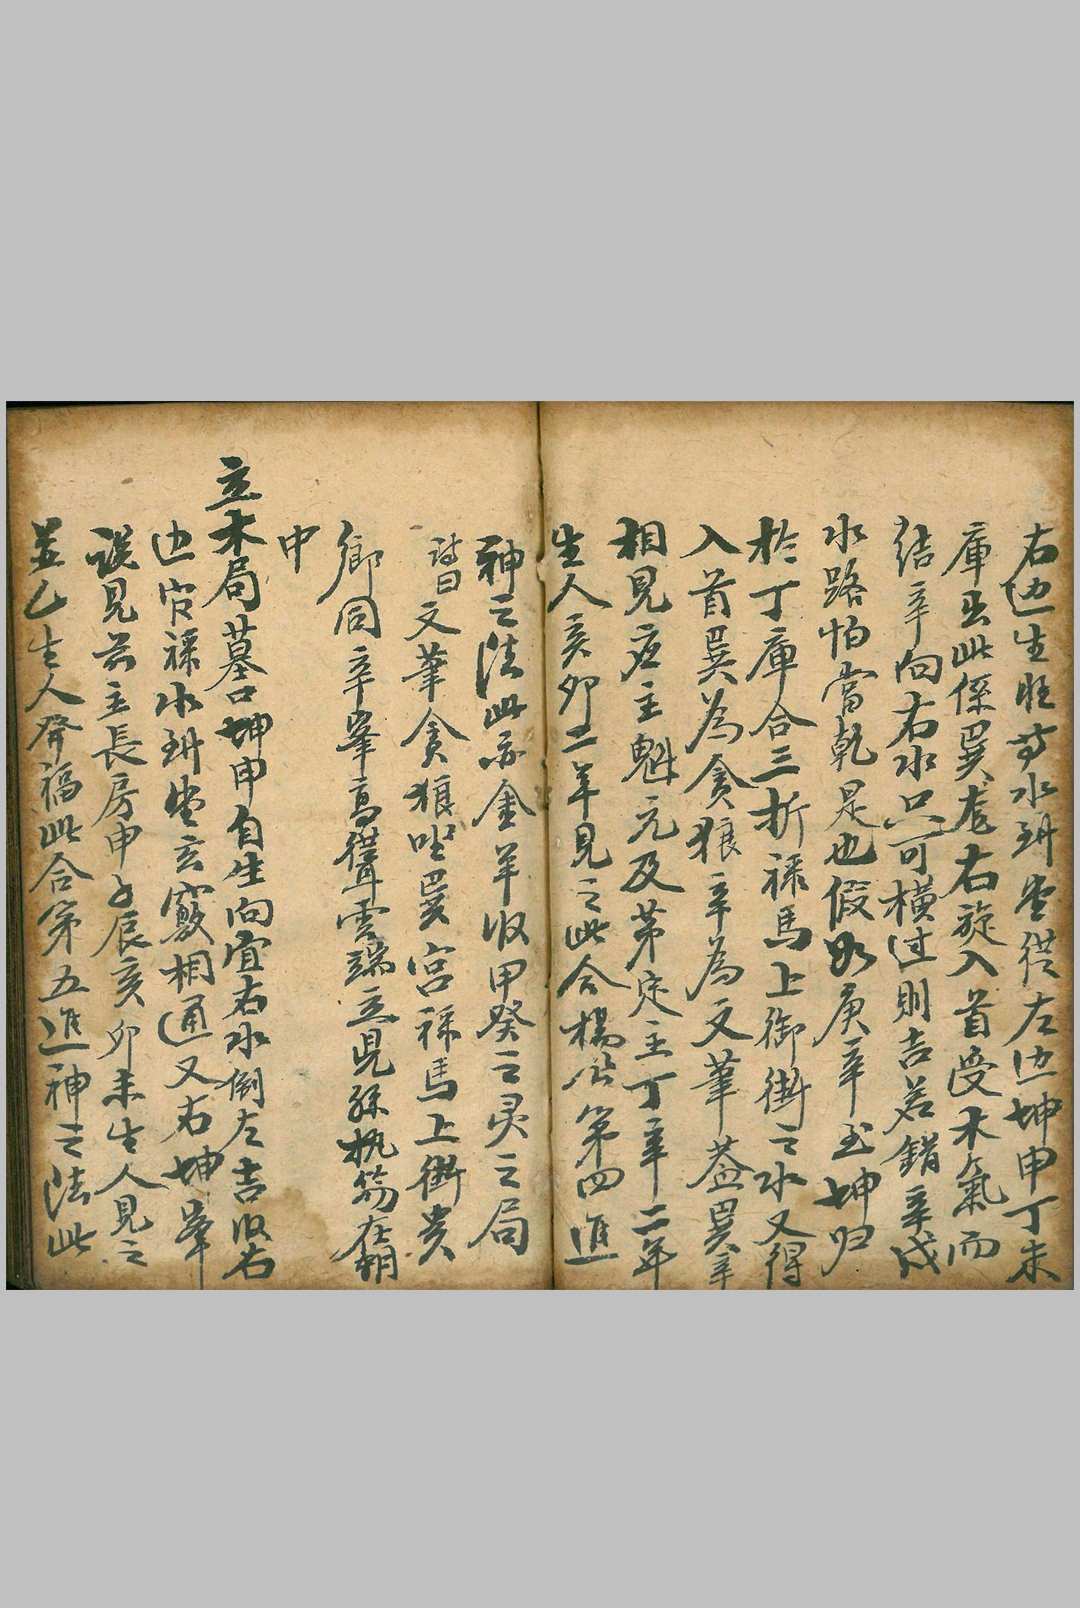 右边生旺等水到堂從左边坤申丁未
庫出此係巽龙右旋入首受木氣而
结辛向右水只可横过則吉若錯辛戌
水路怕當乾是也假如庚辛至坤归
於丁庫合三折禄馬上御街之水又得
入首巽為貪狼辛為文筆葢巽辛
相見应主魁元及第定主丁辛二年
生人亥卯二年見之此合楊公第四進
神之法此亦金羊收甲癸之灵之局
詩曰文筆貪狼坐巽宫禄馬上街貴
鄉同辛峯高聳雲端立児孫执笏在朝
中
立木局墓口坤申自生向宜右水倒左吉收右
边官禄水到堂玄竅相通又右坤峯
誤見前主長房申子辰亥卯未生人見之
並乙生人發福此合第五進神之法此